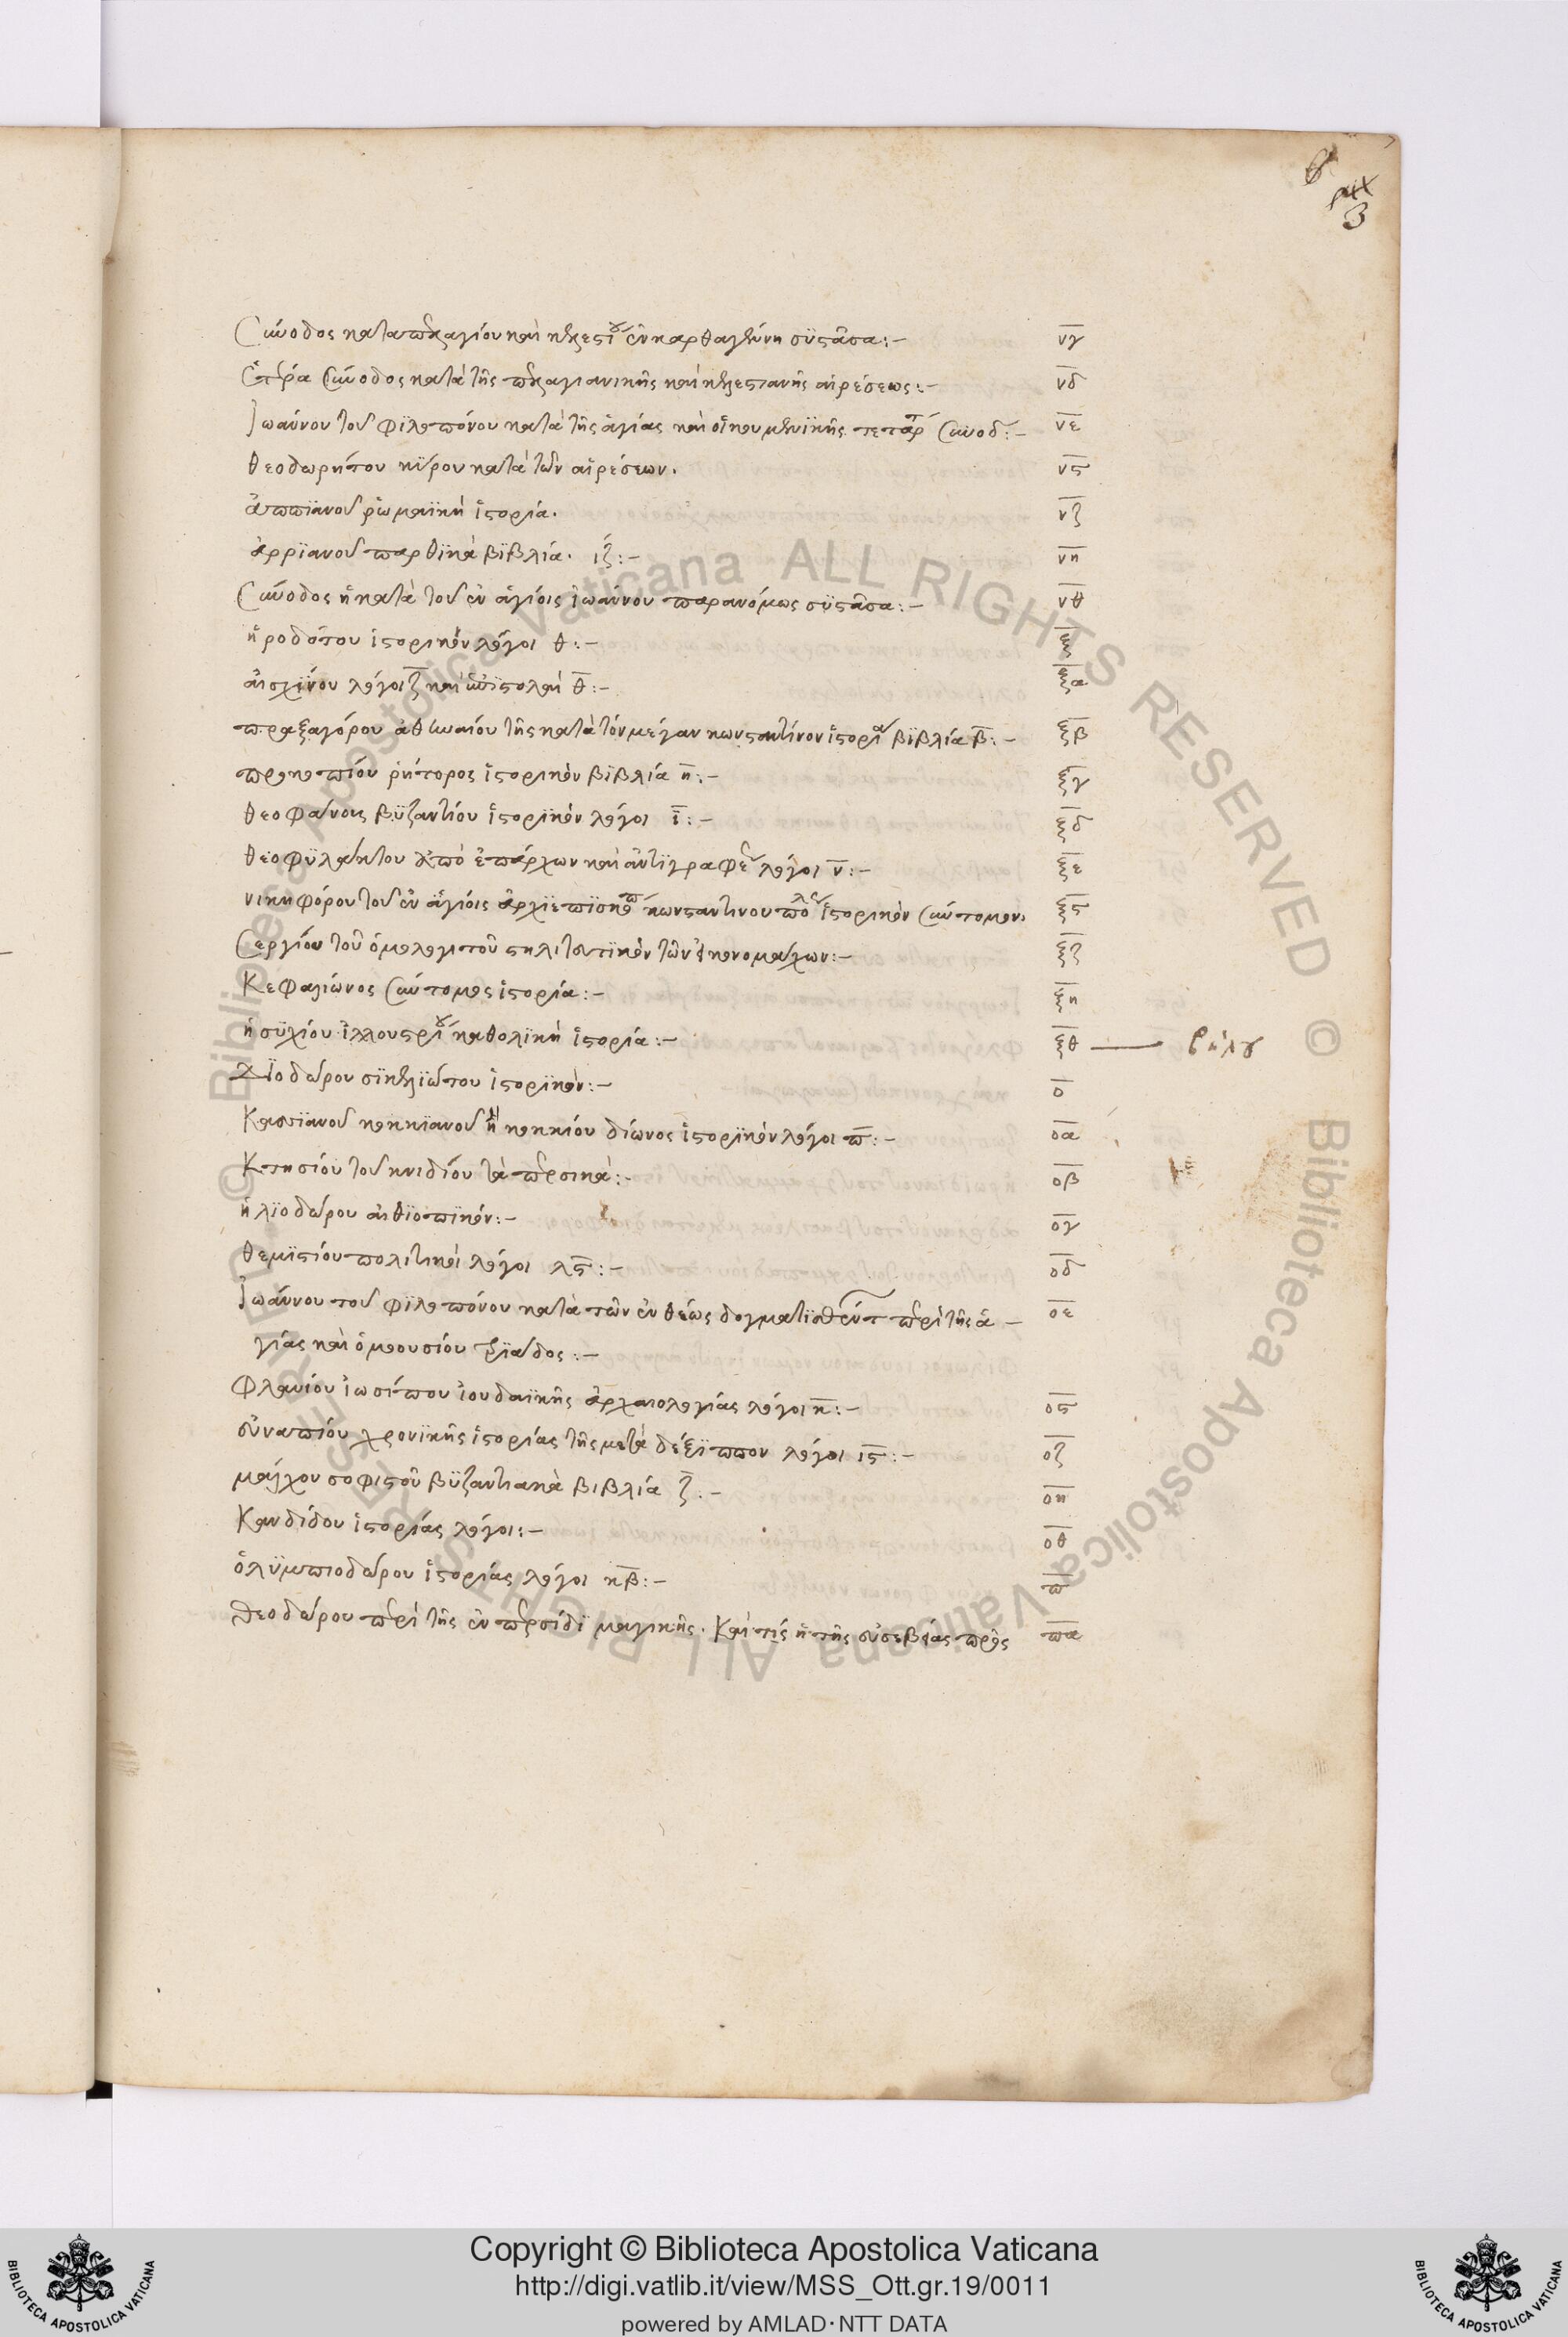 Σύνοδος κατα πελαγίου καὶ κελεστίου ἐν καρθαγένη συστᾶσα:– νγ
Ἑτέρα Σύνοδος κατὰ τῆς πελαγιανικῆς καὶ κελεστιανῆς αἱρέσεως:– νδ
Ἰωάννου τοῦ φιλοπόνου κατὰ τῆς ἁγίας καὶ οἰκουμενικῆς τετάρτ Συνοδ:– νε
θεοδωρήτου κύρου κατὰ τῶν αἱρέσεων. νϛ
ἀππϊανοῦ ῥωμαϊκὴ ἱστορία. νζ
ἀρρϊανοῦ παρθϊκὰ βϊβλία. ιζ:– νη
Σύνοδος ἡ κατὰ τοῦ ἐν ἁγίοις ἰωάννου παρανόμως συστᾶσα:– νθ
ἡροδότου ἱστορικὸν λόγοι θ:– ξ
αἰσχίνου λόγοι ζ καὶ ἐπϊστολαὶ θ:– ξα
πραξαγόρου ἀθηναίου τῆς κατὰ τὸν μέγαν κωνσταντίνον ἱστορία βϊβλία β:– ξβ
προκοπίου ῥήτορος ἱστορικὸν βϊβλία η:– ξγ
θεοφάνους βϋζαντίου ἱστορϊκὸν λόγοι ι:– ξδ
θεοφϋλάκτου ἀπὸ ἐπάρχων καὶ ἀντϊγραφέ λόγοι ν:– ξε
νικηφόρου τοῦ ἐν ἁγίοις ἀρχϊεπϊσκόπ κωνσαντινουπόλε ἱστορικὸν Σύντομον ξϛ
Σεργίου τοῦ ὁμολογιτοῦ ξζ
Κεφαλίωνος Σύντομος ἱστορία:– ξη
ἡσϋχίου ἰλλουστρίου καθολϊκὴ ἱστορία:– ξθ — βήλου
Διοδώρου σϊκελϊώτου ἱστορϊκὸν:– ο
Κασσϊανοῦ κοκκϊανοῦ ἢ κοκκίου δίωνος ἱστορϊκὸν λόγοι π:– οα
Κτησίου τοῦ κνιδίου τὰ περσικὰ:– οβ
ἡλϊοδώρου αἰθϊοπϊκόν:– ογ
θεμϊστίου πολιτικοὶ λόγοι λϛ:– οδ
Ἰωάννου τοῦ φϊλοπόνου κατὰ τῶν ἐνθέως δογματϊσθέντ περὶ τῆς ἁ– οε
γίας καὶ ὁμοουσίου τρϊάδος:–
Φλαυίου ἰωσίπου ἰουδαϊκῆς ἀρχαιολογίας λόγοι κ:– οϛ
εὐναπίου χρονϊκῆς ἱστορίας τῆς μετὰ δέξϊππον λόγοι ιϛ:– οζ
μάλχου σοφιστοῦ βϋζαντιακὰ βιβλία ζ:– οη
Κανδίδου ἱστορίας λόγοι:– οθ
ὀλϋμπιοδώρου ἱστορίας λόγοι κβ:– π
Θεοδώρου περὶ τῆς ἐν περσίδϊ μαγικῆς. Καὶ τίς ἡ τῆς εὐσεβείας πρὸς πα
© Biblioteca Apostolica Vaticana ALL RIGHTS RESERVED © Biblioteca Apostolica Vaticana ALL RIGHTS RESERVED
BIBLIOTECA APOSTOLICA VATICANA
Copyright © Biblioteca Apostolica Vaticana
http://digi.vatlib.it/view/MSS_Ott.gr.19/0011
powered by AMLAD·NTT DATA
BIBLIOTECA APOSTOLICA VATICANA